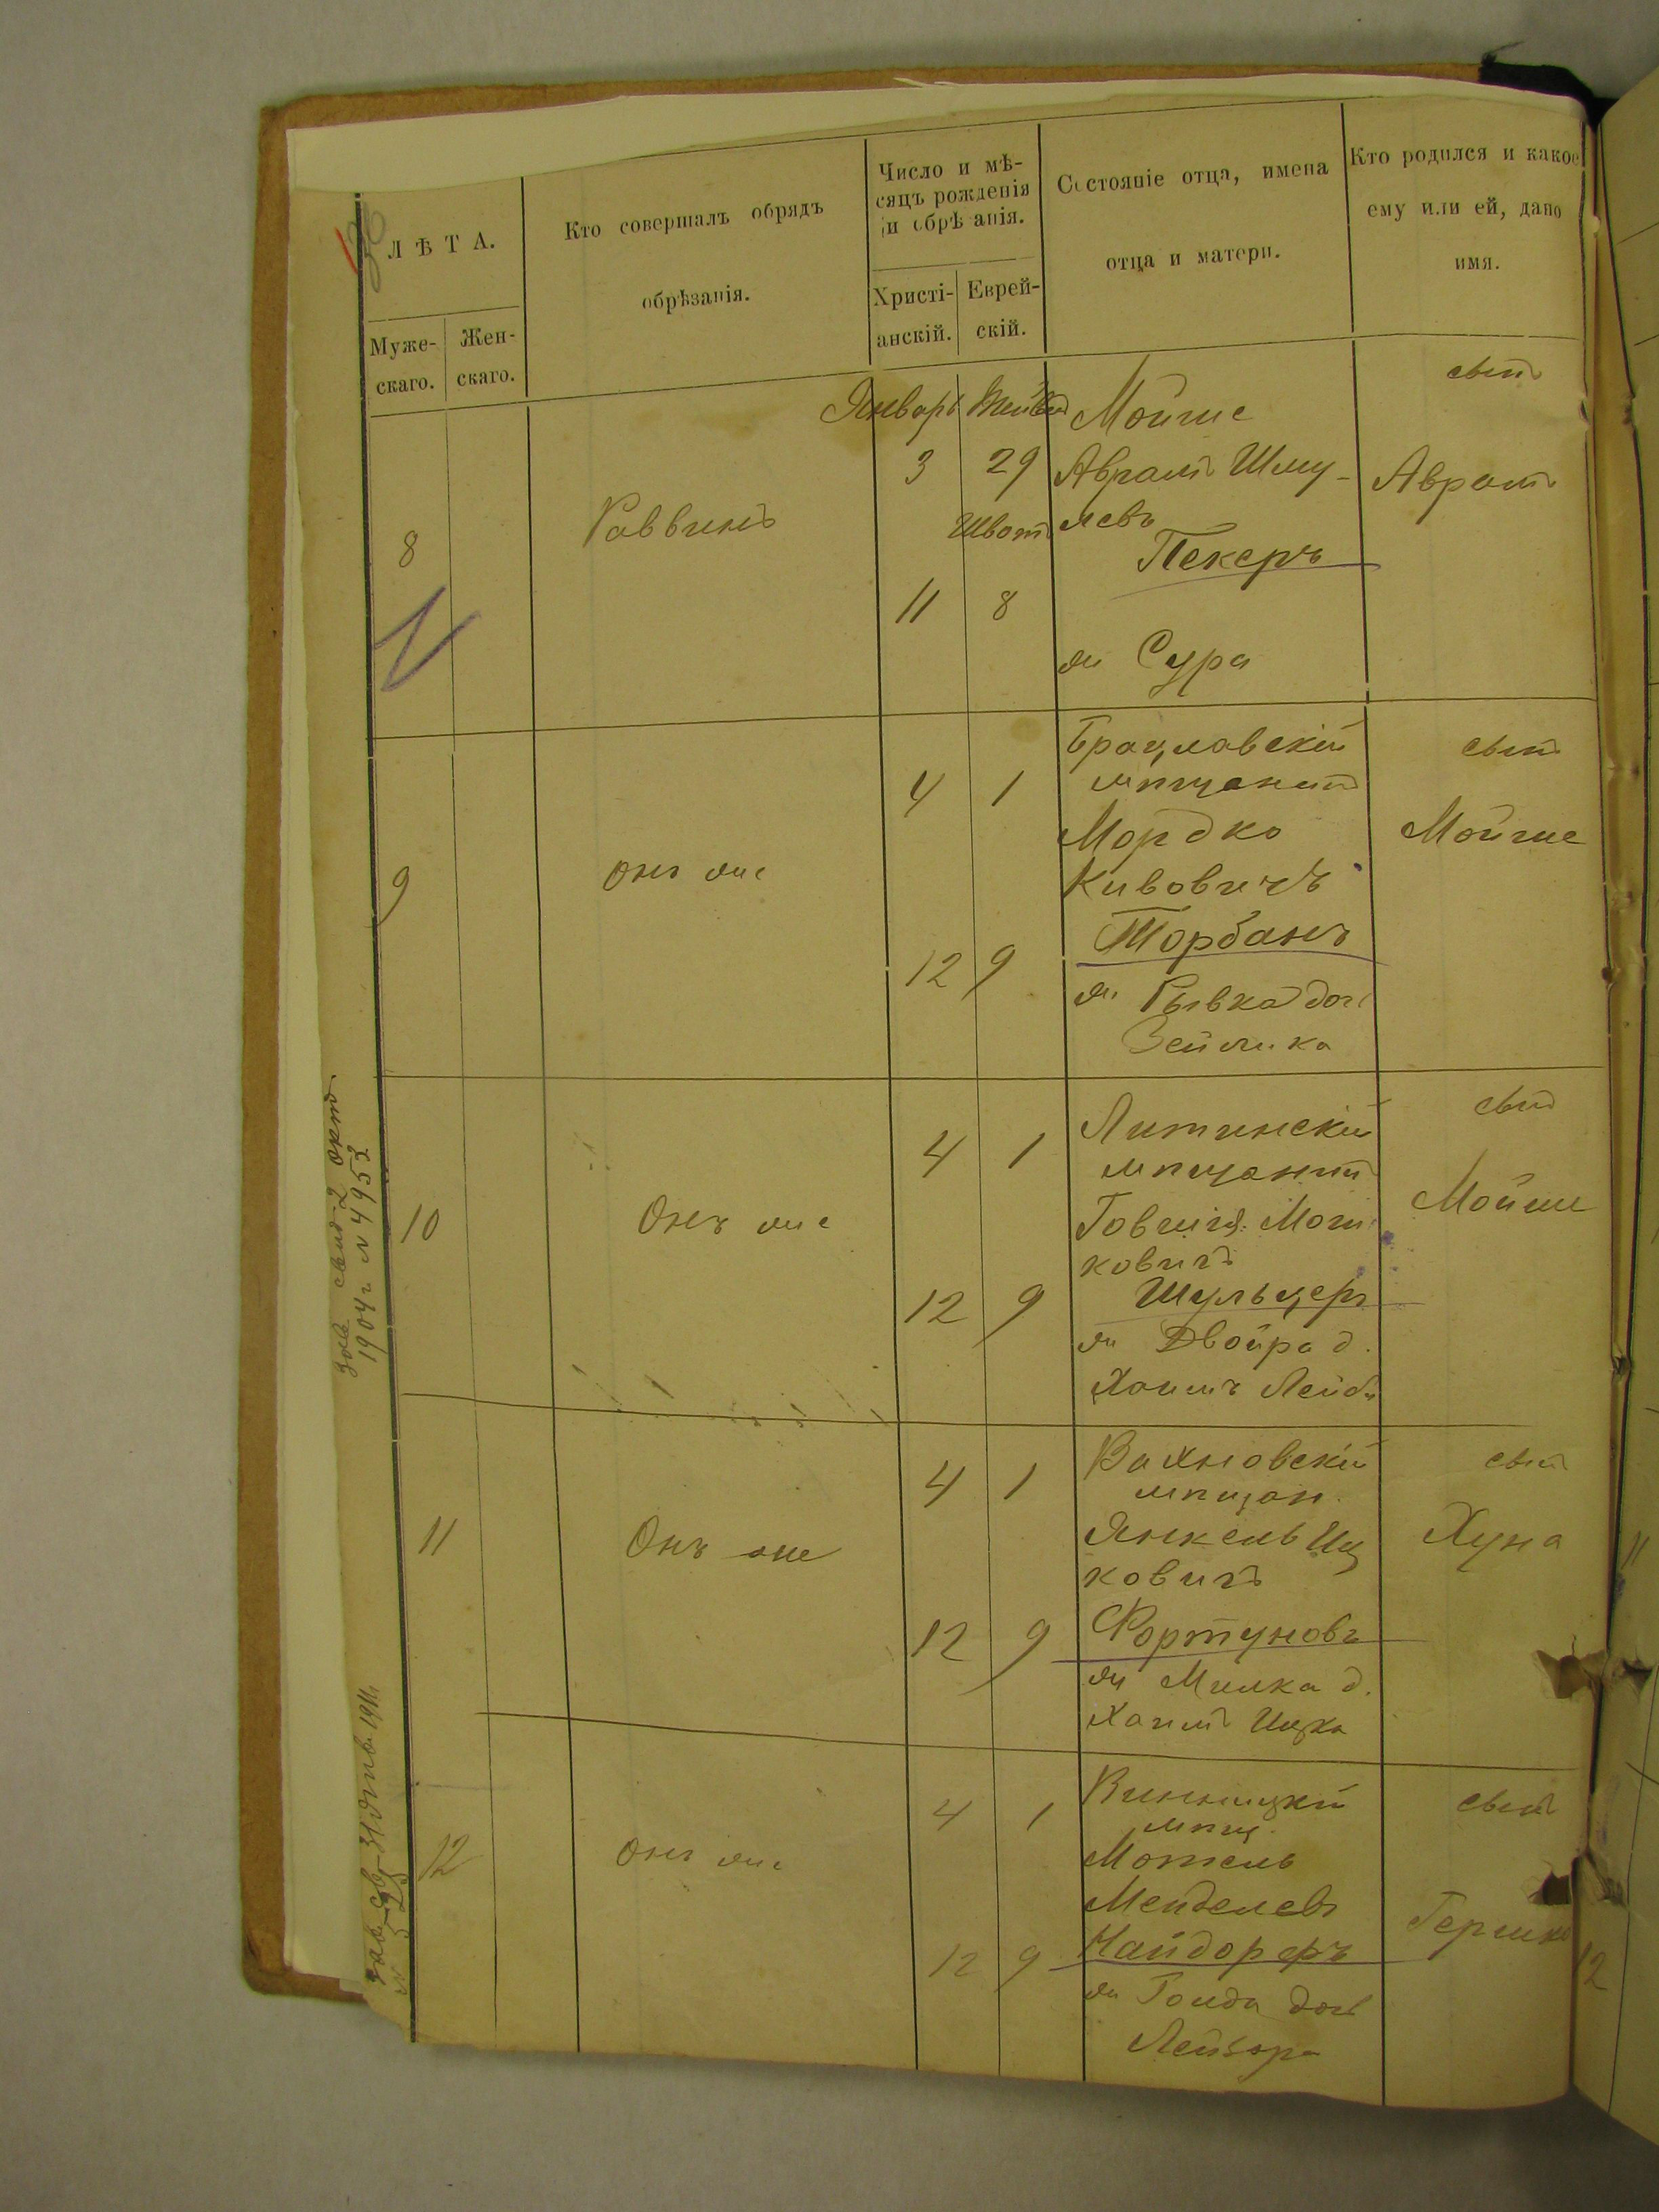 ЛѢТА.
Муже-
скаго.
Жен-
скаго.
Кто совершалъ обрядъ
обрѣзанія.
Число и мѣ-
сяцъ рожденія
и обрѣзанія.
Христі-
анскій.
Еврей-
скій.
Состояніе отца, имена
отца и матери.
Кто родился и какое
ему или ей, дано
имя.
8
Раввинъ
Январь
3
29
Шват
11
8
Мойше
Аврамъ Шму-
левъ
Пекеръ
жи Сура
сынъ
Аврамъ
9
Онъ же
4
1
12
9
Брацлавскій
мѣщанинъ
Мордко
Кивовичъ
Торбанъ
жи Рывка дочь
Зейлика
сынъ
Мойше
10
Онъ же
4
1
12
9
Литинскій
мѣщанинъ
Мош-
ковичъ
Шульцеръ
жи Двойра д.
Хаимъ Лейби
сынъ
Мойше
11
Онъ же
4
1
12
9
Вахновскій
мѣщан.
Янкель Иц
ковичъ
Фортуновъ
жи Милка д.
Хаимъ Ицка
сынъ
Хуна
12
Онъ же
4
1
12
9
Винницкій
мѣщ.
Мотель
Менделевъ
Найдорфъ
жи Голда дочь
Лейзора
сынъ
Гершко
2 окт.
1904 г. № 4953
1911
11
12